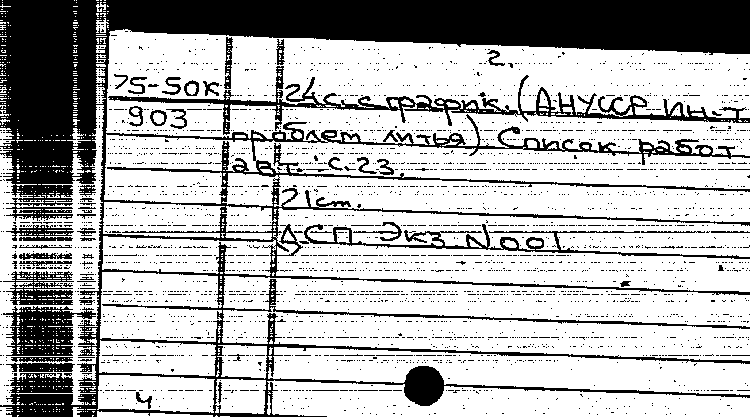 2.
75-50к 24с. с график. (АН УССР Ин-т
903 проблем литья) Список работ
авт. с. 23.
21 cm.
ДСП. Экз N 001
4